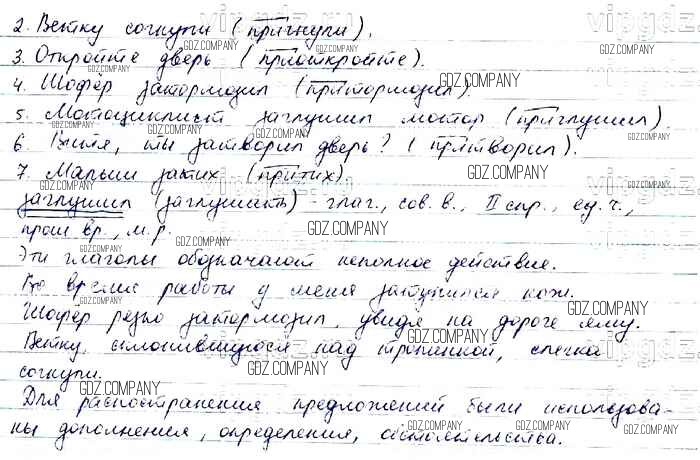 2. Ветку согнули (пригнули).
3. Откройте дверь (приоткройте).
4. Шофёр затормозил (притормозил).
5. Мотоциклист заглушил мотор (приглушил).
6. Витя, ты затворил дверь? (притворил).
7. Малыш затих (притих).
заглушил (заглушить) - глаг., сов. в., II спр., ед. ч.,
прош. вр., м. р.
Эти глаголы обозначают неполное действие.
Во время работы у меня затупился нож.
Шофёр резко затормозил, увидя на дороге яму.
Ветку, склонившуюся над тропинкой, слегка
согнули.
Для распостранения предложений были использова-
ны дополнения, определения, обстоятельства.
GDZ.COMPANY
vipgdz.ru